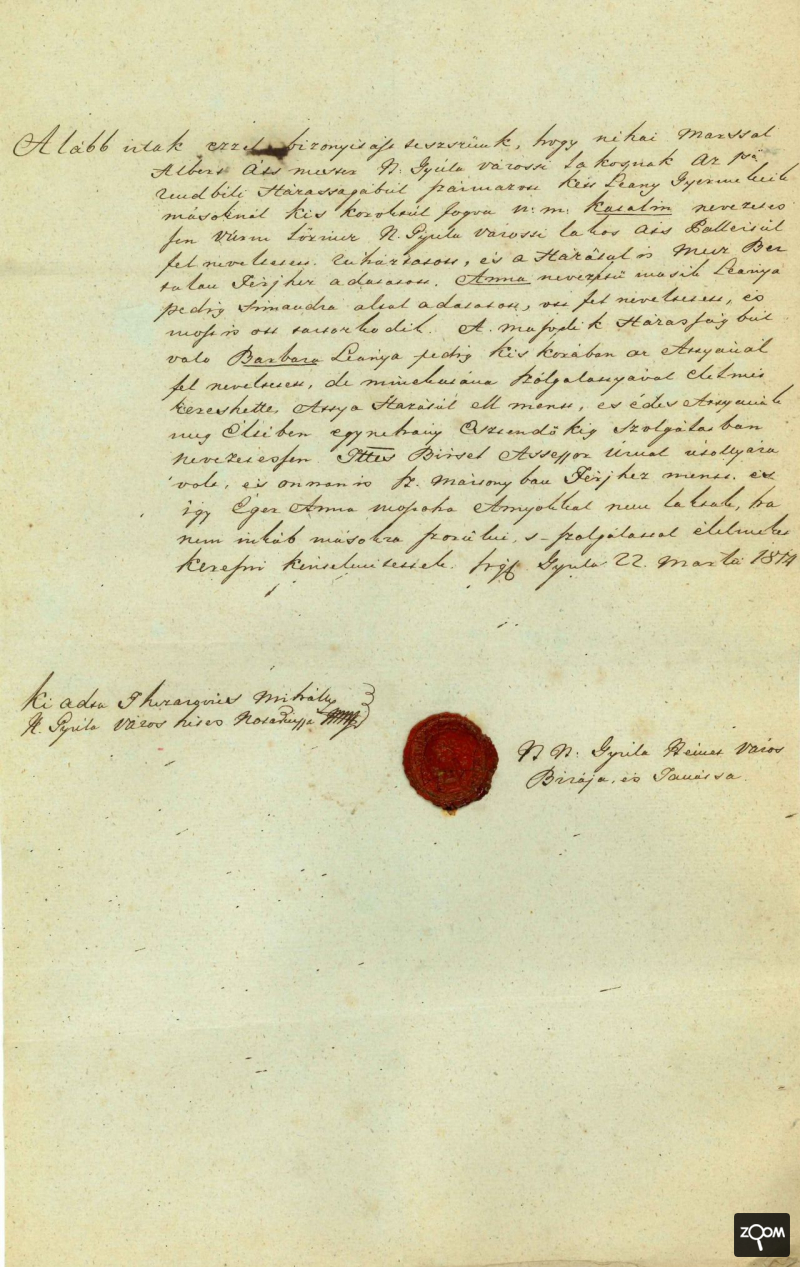 Alább irtak ezzel bizonyitást teszszünk, hogy néhai Marssal
Albert Áts mester N. Gyula várossi Lakosnak Az
rendbéli Házasságábúl származott kiss Leány Gyermekeik
másoknál kis korokbúl fogva u: m: Katalin nevezetes
sen Vúrm Lőrintz N. Gyula várossi lakos Áts Pallérsúl
fel neveltetett, Ruháztatott, és a Házásal is
Férjhez adattatott. Anna nevezetű másik Leánya
pedig Simándra által adattatott, ott fel neveltetett, és
most is ott tartozkodik. A második Házasságbúl
való Barbara Leánya pedig kis korában az Attyánál
fel neveltetett, de minekutána Szólgálattyával élelmét
kereshette, Attya Házátúl ell ment, és édes Attyának
meg Éltében egynehány Esztendőkig Szolgálatban
nevezetessen Ttes Birset Assessor Úrnál
volt, és onnan is Férjhez ment. és
így Éger Anna mostoha Annyokkal nem laktak, ha
nem inkáb másokra szorúlni, s szolgálattal élelmeket
keresni kénteleníttettek. Gyula 22. Marta 1814
Ki adta Mihály
N. Gyula Város hites Notariussa
N N: Gyula Német Város
Birája, és Tanátsa.
ZOOM